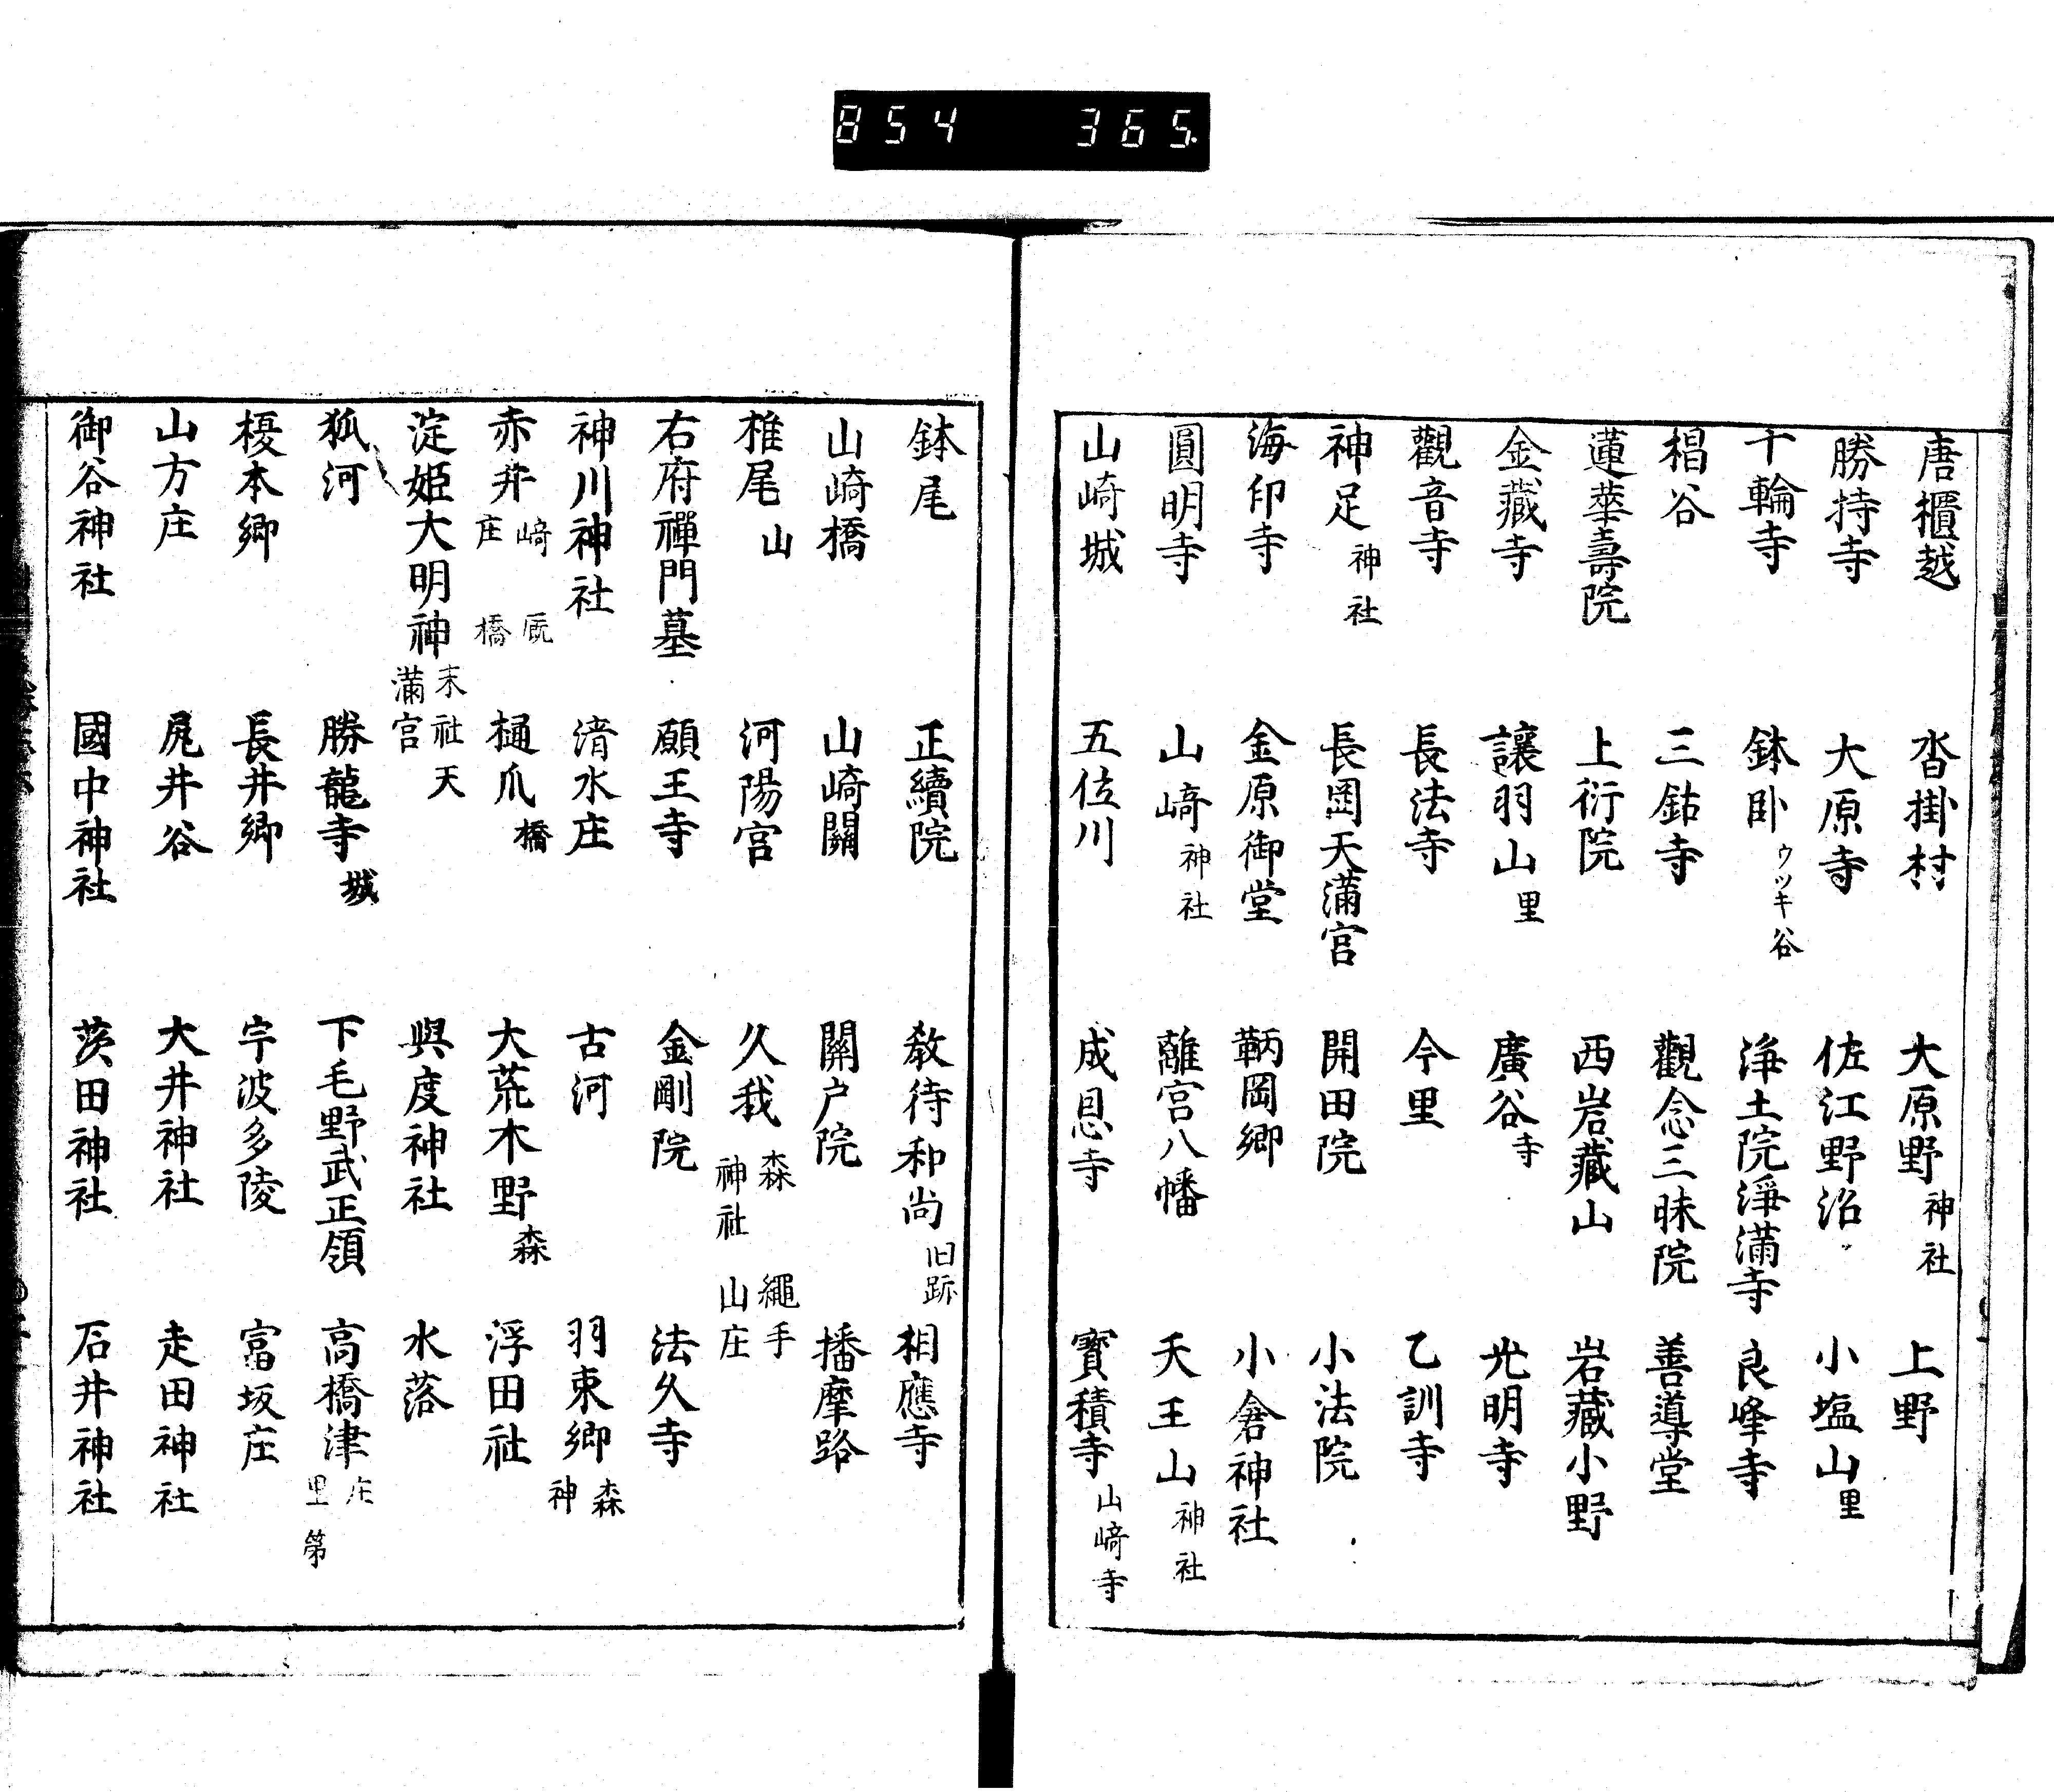 854 365
唐櫃越 沓掛村 大原野神社 上野
勝持寺 大原寺 佐江野沼 小塩山里
十輪寺 鉢卧ウツキ谷 淨土院淨滿寺 良峰寺
椙谷 三鈷寺 觀念三昧院 善導堂
蓮華壽院 上衍院 西岩藏山 岩藏小野
金藏寺 讓羽山里 廣谷寺 光明寺
觀音寺 長法寺 今里 乙訓寺
神足神社 長罡天滿宮 開田院 小法院
海印寺 金原御堂 鞆岡鄉 小倉神社
圓明寺 山崎神社 離宮八幡 天王山神社
山崎城 五位川 成恩寺 寳積寺山崎寺
鉢尾 正續院 教待和尚旧跡 相應寺
山崎橋 山崎關 關戸院 播摩路
椎尾山 河陽宮 久我森繩手神社山庄
右府禪門墓 願王寺 金剛院 法久寺
神川神社 清水庄 古河 羽束鄉森神
赤井崎厩庄橋 樋爪橋 大荒木野森 浮田社
淀姫大明神末社天滿宮 與度神社 水落
狐河 勝龍寺城 下毛野武正領 高橋津庄里第
榎本鄉 長井鄉 宇波多陵 富坂庄
山方庄 尻井谷 大井神社 走田神社
御谷神社 國中神社 茨田神社 石井神社